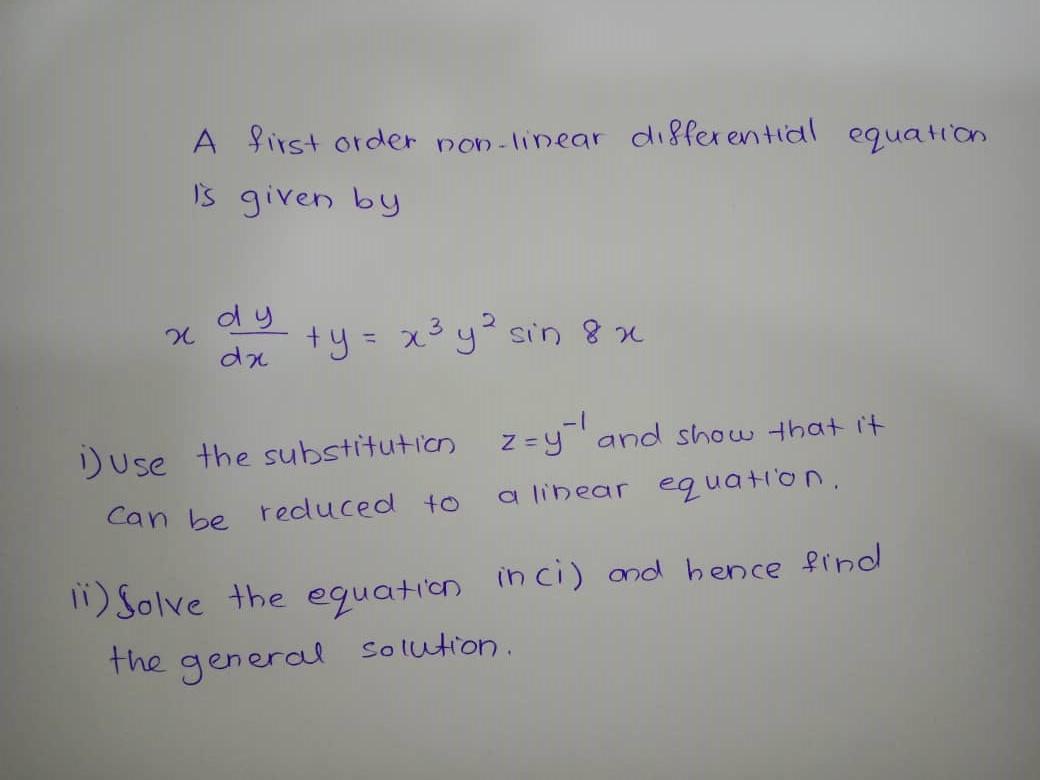 A first order non-linear differential equation
is given by
x dy/dx + y = x³ y² sin 8x
i) Use the substitution z = y⁻¹ and show that it
can be reduced to a linear equation.
ii) Solve the equation in (i) and hence find
the general solution.